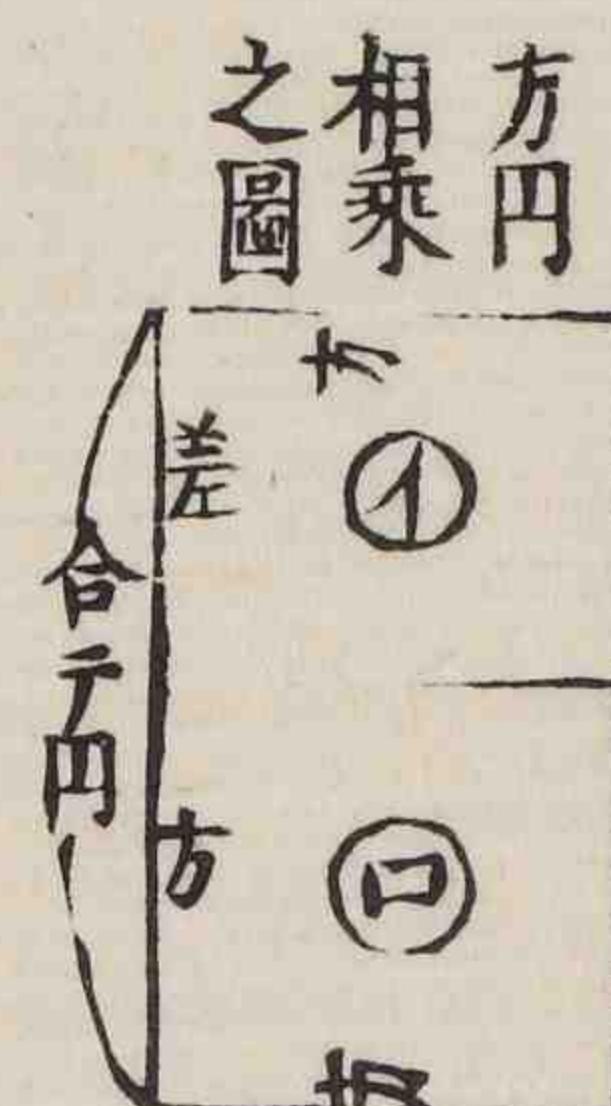 方円
相乗
之圖
方
イ
差
合テ円
方
ロ